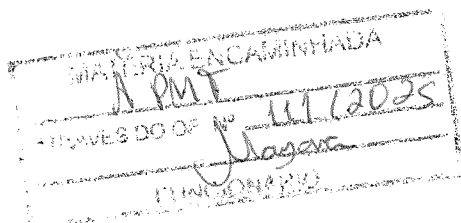 MATÉRIA ENCAMINHADA
A PMT
ATRAVÉS DO OF Nº 111/2025
Mayara
FUNCIONÁRIO